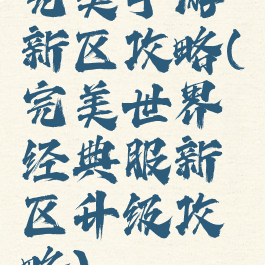 完美手游
新区攻略(
完美世界
经典服新
区升级攻
略)